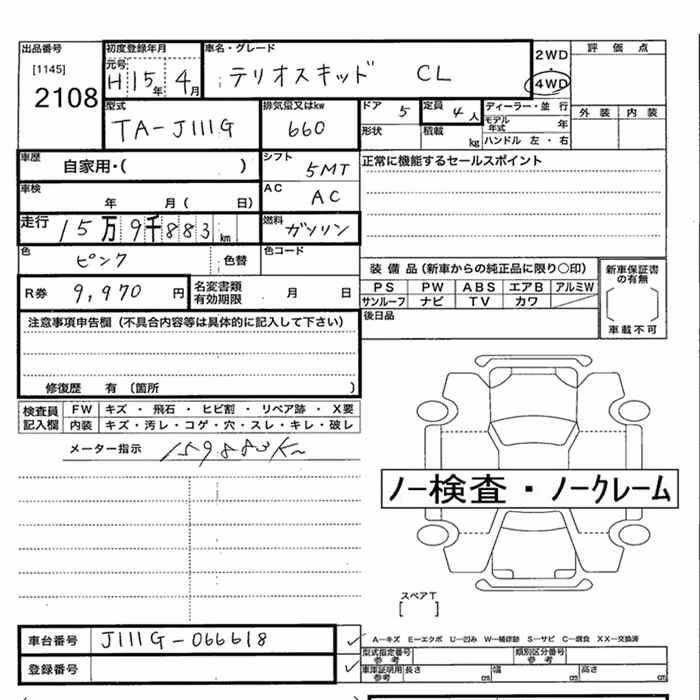 出品番号
[1145]
2108
初度登録年月
元号
H 15年 4月
車名・グレード
テリオスキッド CL
2WD
・
4WD
評価点
外装 内装
型式
TA-J111G
排気量又はkw
660
ドア 5
定員 4人
形状
積載 kg
ディーラー・並行
モデル年式 年
ハンドル 左・右
車歴
自家用・( )
シフト
5MT
正常に機能するセールスポイント
車検
年 月( 日)
AC
AC
走行 15万9千883km
燃料
ガソリン
色
ピンク
色替
色コード
R券 9,970円
名変書類有効期限 月 日
装備品(新車からの純正品に限り○印)
PS PW ABS エアB アルミW
サンルーフ ナビ TV カワ
後日品
新車保証書の有無
[ ]
車載不可
注意事項申告欄(不具合内容等は具体的に記入して下さい)
修復歴 有(箇所 )
検査員記入欄
FW キズ・飛石・ヒビ割・リペア跡・X要
内装 キズ・汚レ・コゲ・穴・スレ・キレ・破レ
メーター指示 159883K
ノー検査・ノークレーム
スペアT
[ ]
車台番号 J111G-066618
登録番号
A-キズ E-エクボ U-凹み W-補修跡 S-サビ C-腐食 XX-交換済
型式指定番号
参考
類別区分番号
参考
車庫証明用
参考
長さ cm 幅 cm 高さ cm